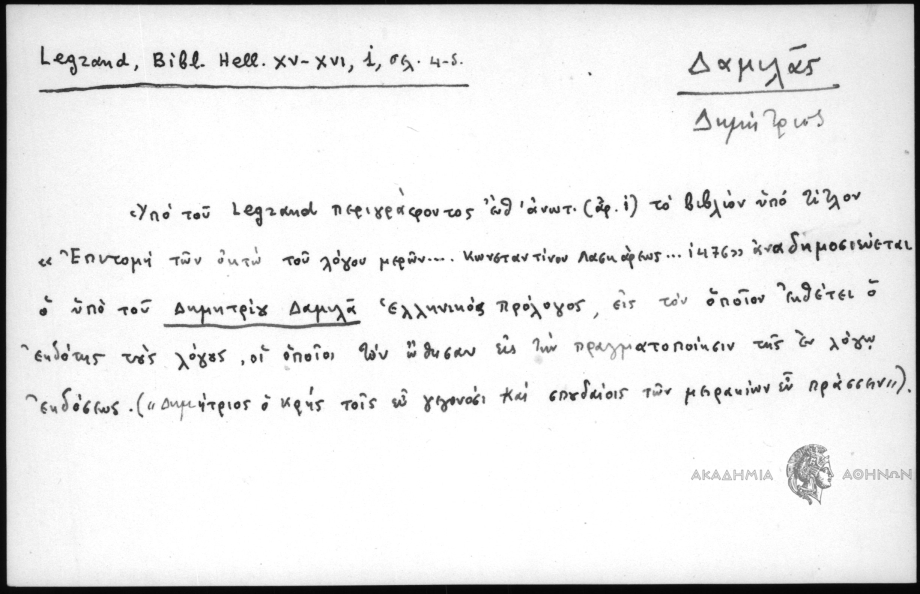 Legrand, Bibl. Hell. XV-XVI, 1, σελ. 4-5.
Δαμιλᾶς
Δημήτριος
Ὑπό τοῦ Legrand περιγράφοντος ἔνθ' ἀνωτ. (ἀρ. 1) τό βιβλίον ὑπό τίτλον
« Ἐπιτομή τῶν ὀκτώ τοῦ λόγου μερῶν.... Κωνσταντίνου Λασκάρεως... 1476» ἀναδημοσιεύεται
ὁ ὑπό τοῦ Δημητρίου Δαμιλᾶ ἑλληνικός πρόλογος, εἰς τόν ὁποῖον ἐκθέτει ὁ
ἐκδότης τούς λόγους, οἱ ὁποῖοι τόν ὤθησαν εἰς τήν πραγματοποίησιν τῆς ἐν λόγῳ
ἐκδόσεως. («Δημήτριος ὁ Κρής τοῖς εὖ γεγονόσι καί σπουδαίοις τῶν μειρακίων εὖ πράττειν»).
ΑΚΑΔΗΜΙΑ ΑΘΗΝΩΝ